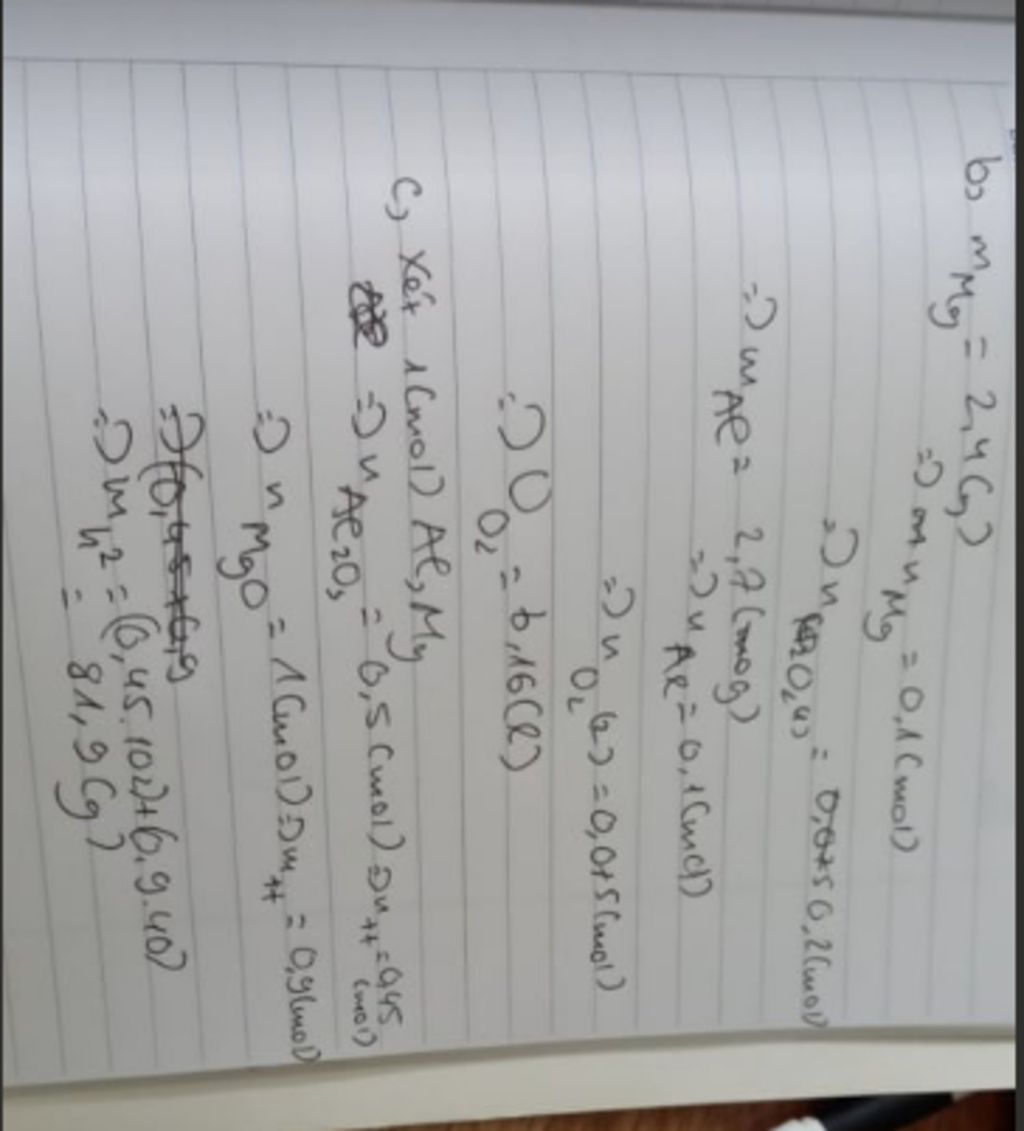 b, mMg = 2,4 (g)
=> nMg = 0,1 (mol)
=> nO2(1) = 0,2 (mol)
=> mAl = 2,7 (mog)
=> nAl = 0,1 (mol)
=> nO2 (2) = 0,075 (mol)
=> VO2 = 6,16 (l)
c, Xét 1 (mol) Al, Mg
=> nAl2O3 = 0,5 (mol) => ntt = 0,45 (mol)
=> nMgO = 1 (mol) => ntt = 0,9 (mol)
=> (0,45 + 0,9
=> mh2 = (0,45.102) + (0.9.40)
= 81,9 (g)